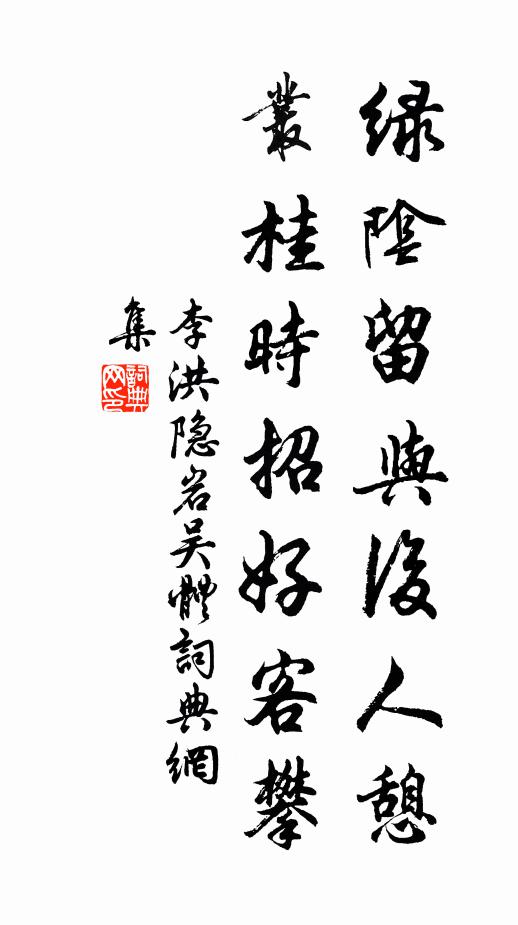 綠陰留與後人憩
叢桂時招好客攀
李洪隐岩吴體詞典網
集
詞典网印